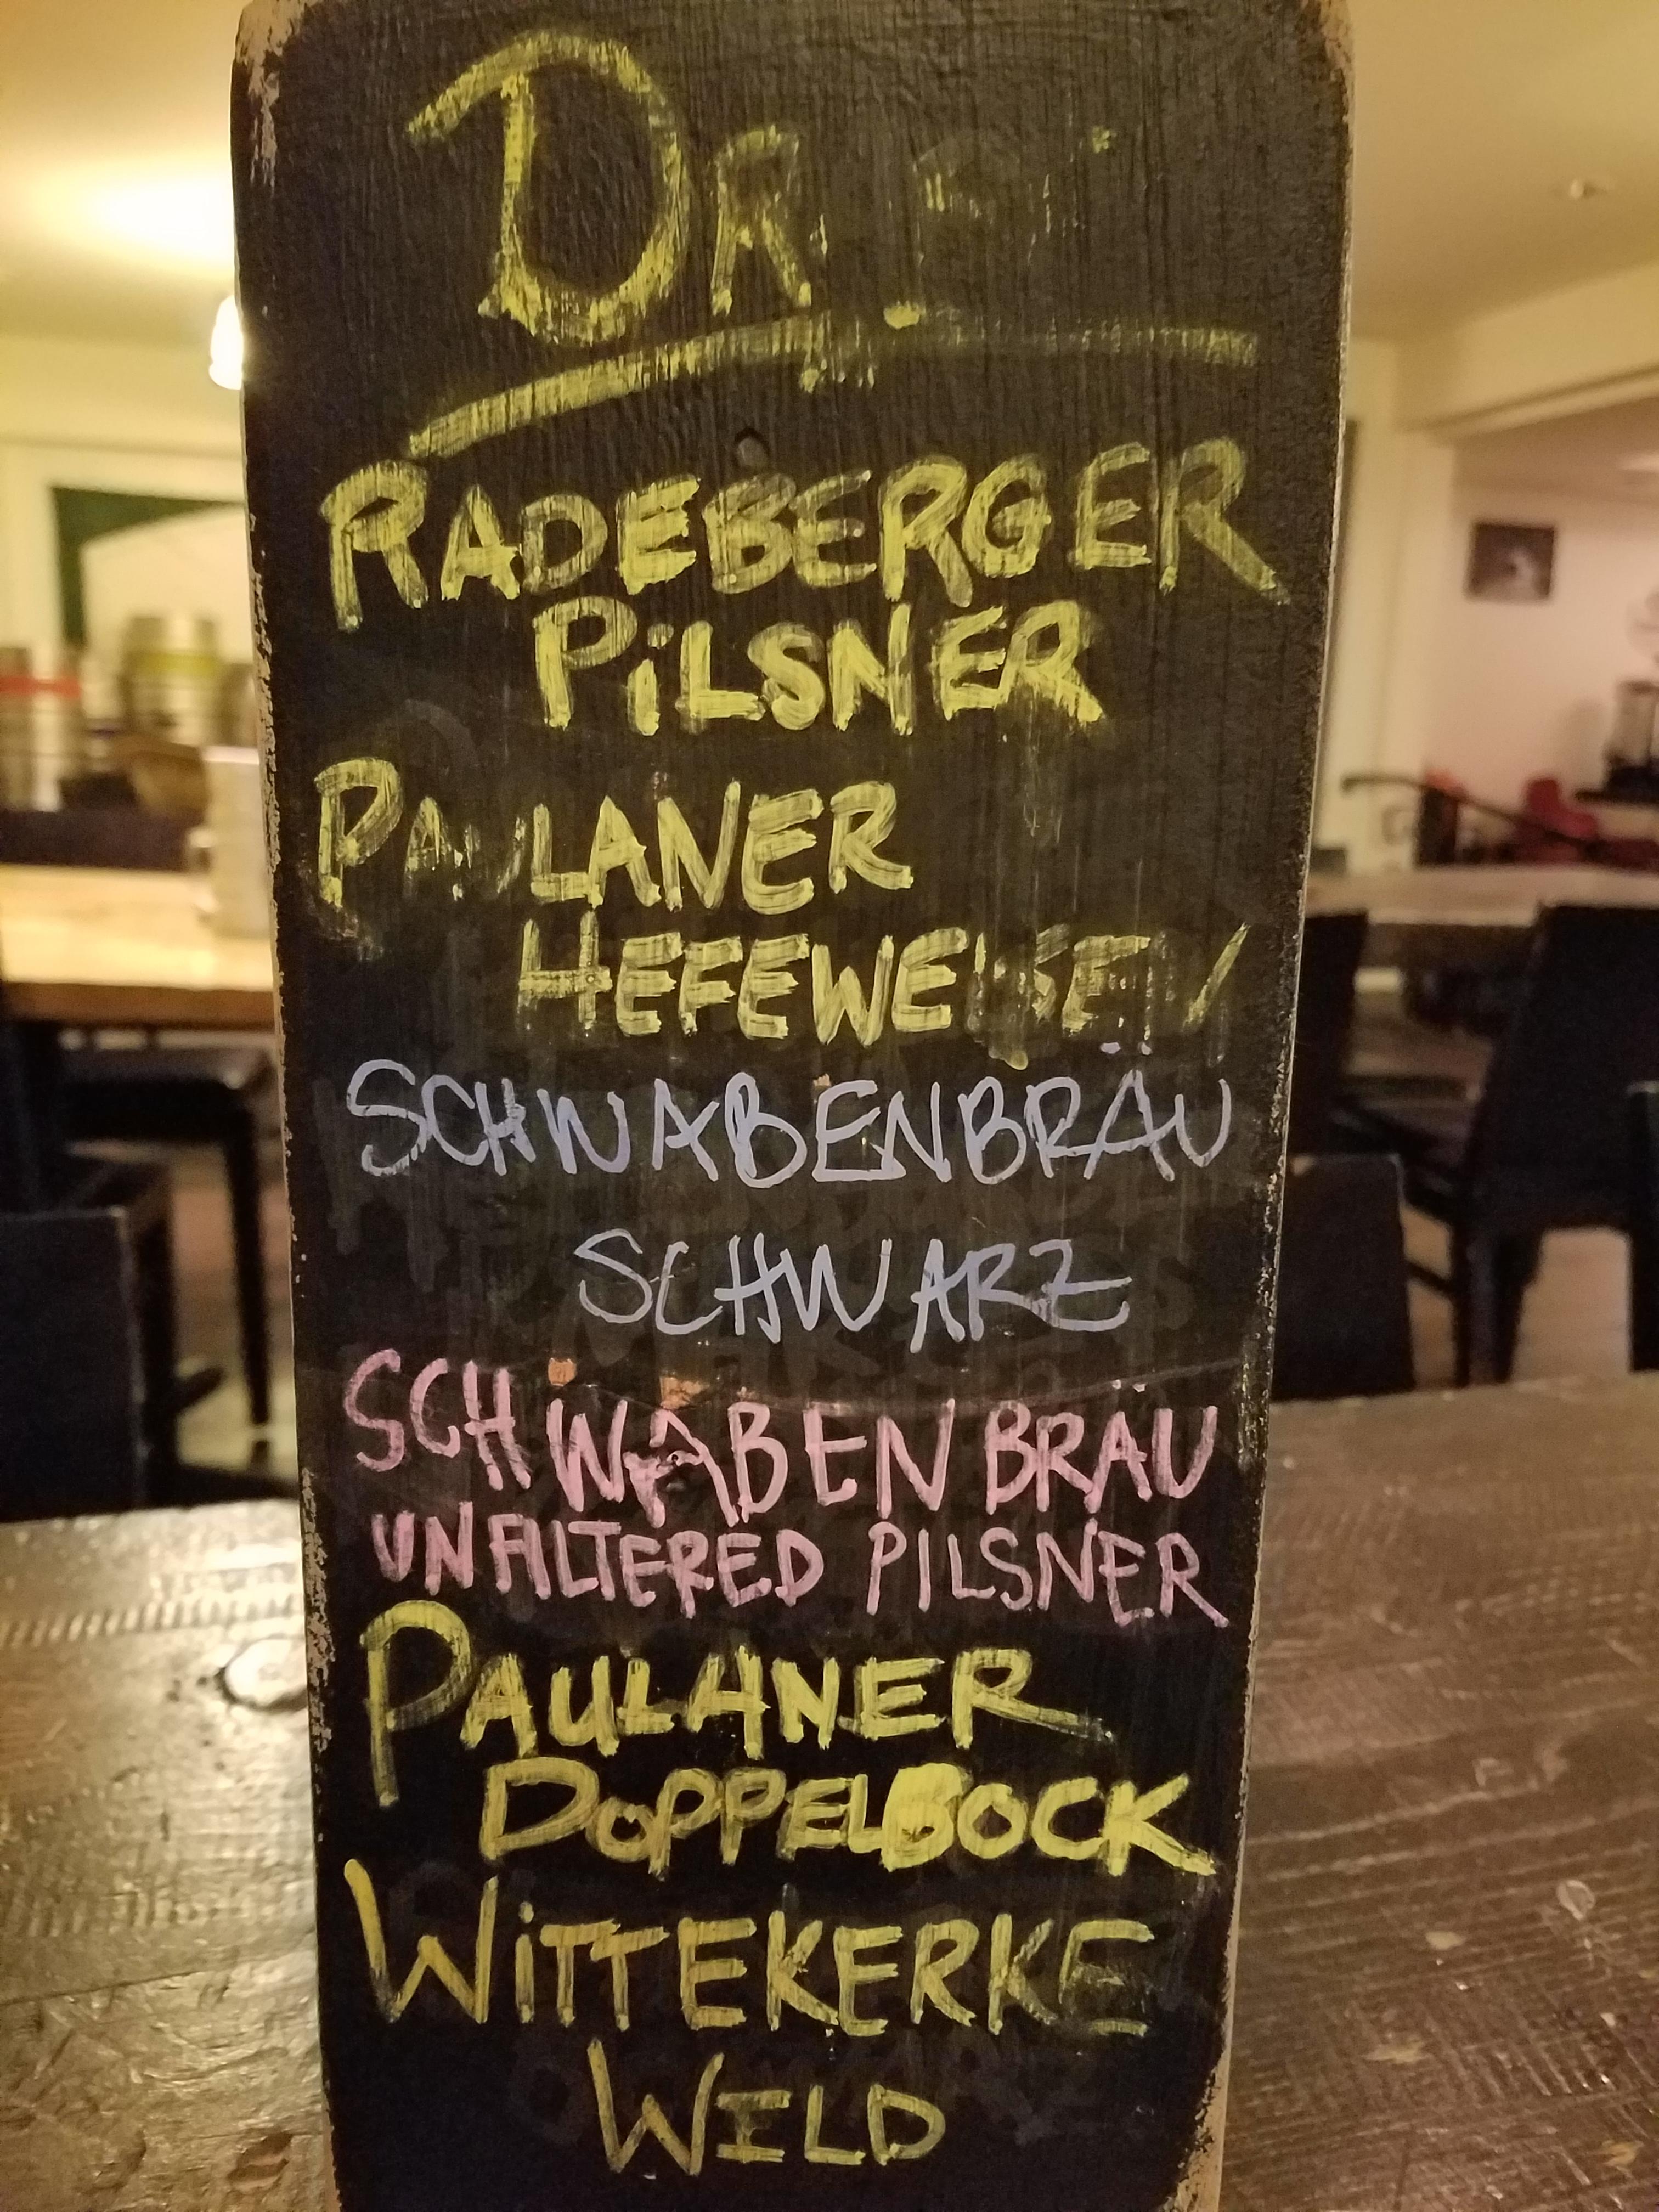 RADEBERGER
PILSNER
PAULANER
HEFEWEIZEN
SCHWABENBRÄU
SCHWARZ
SCHWABEN BRAU
UNFILTERED PILSNER
PAULANER
DOPPELBOCK
WITTEKERKE
WILD